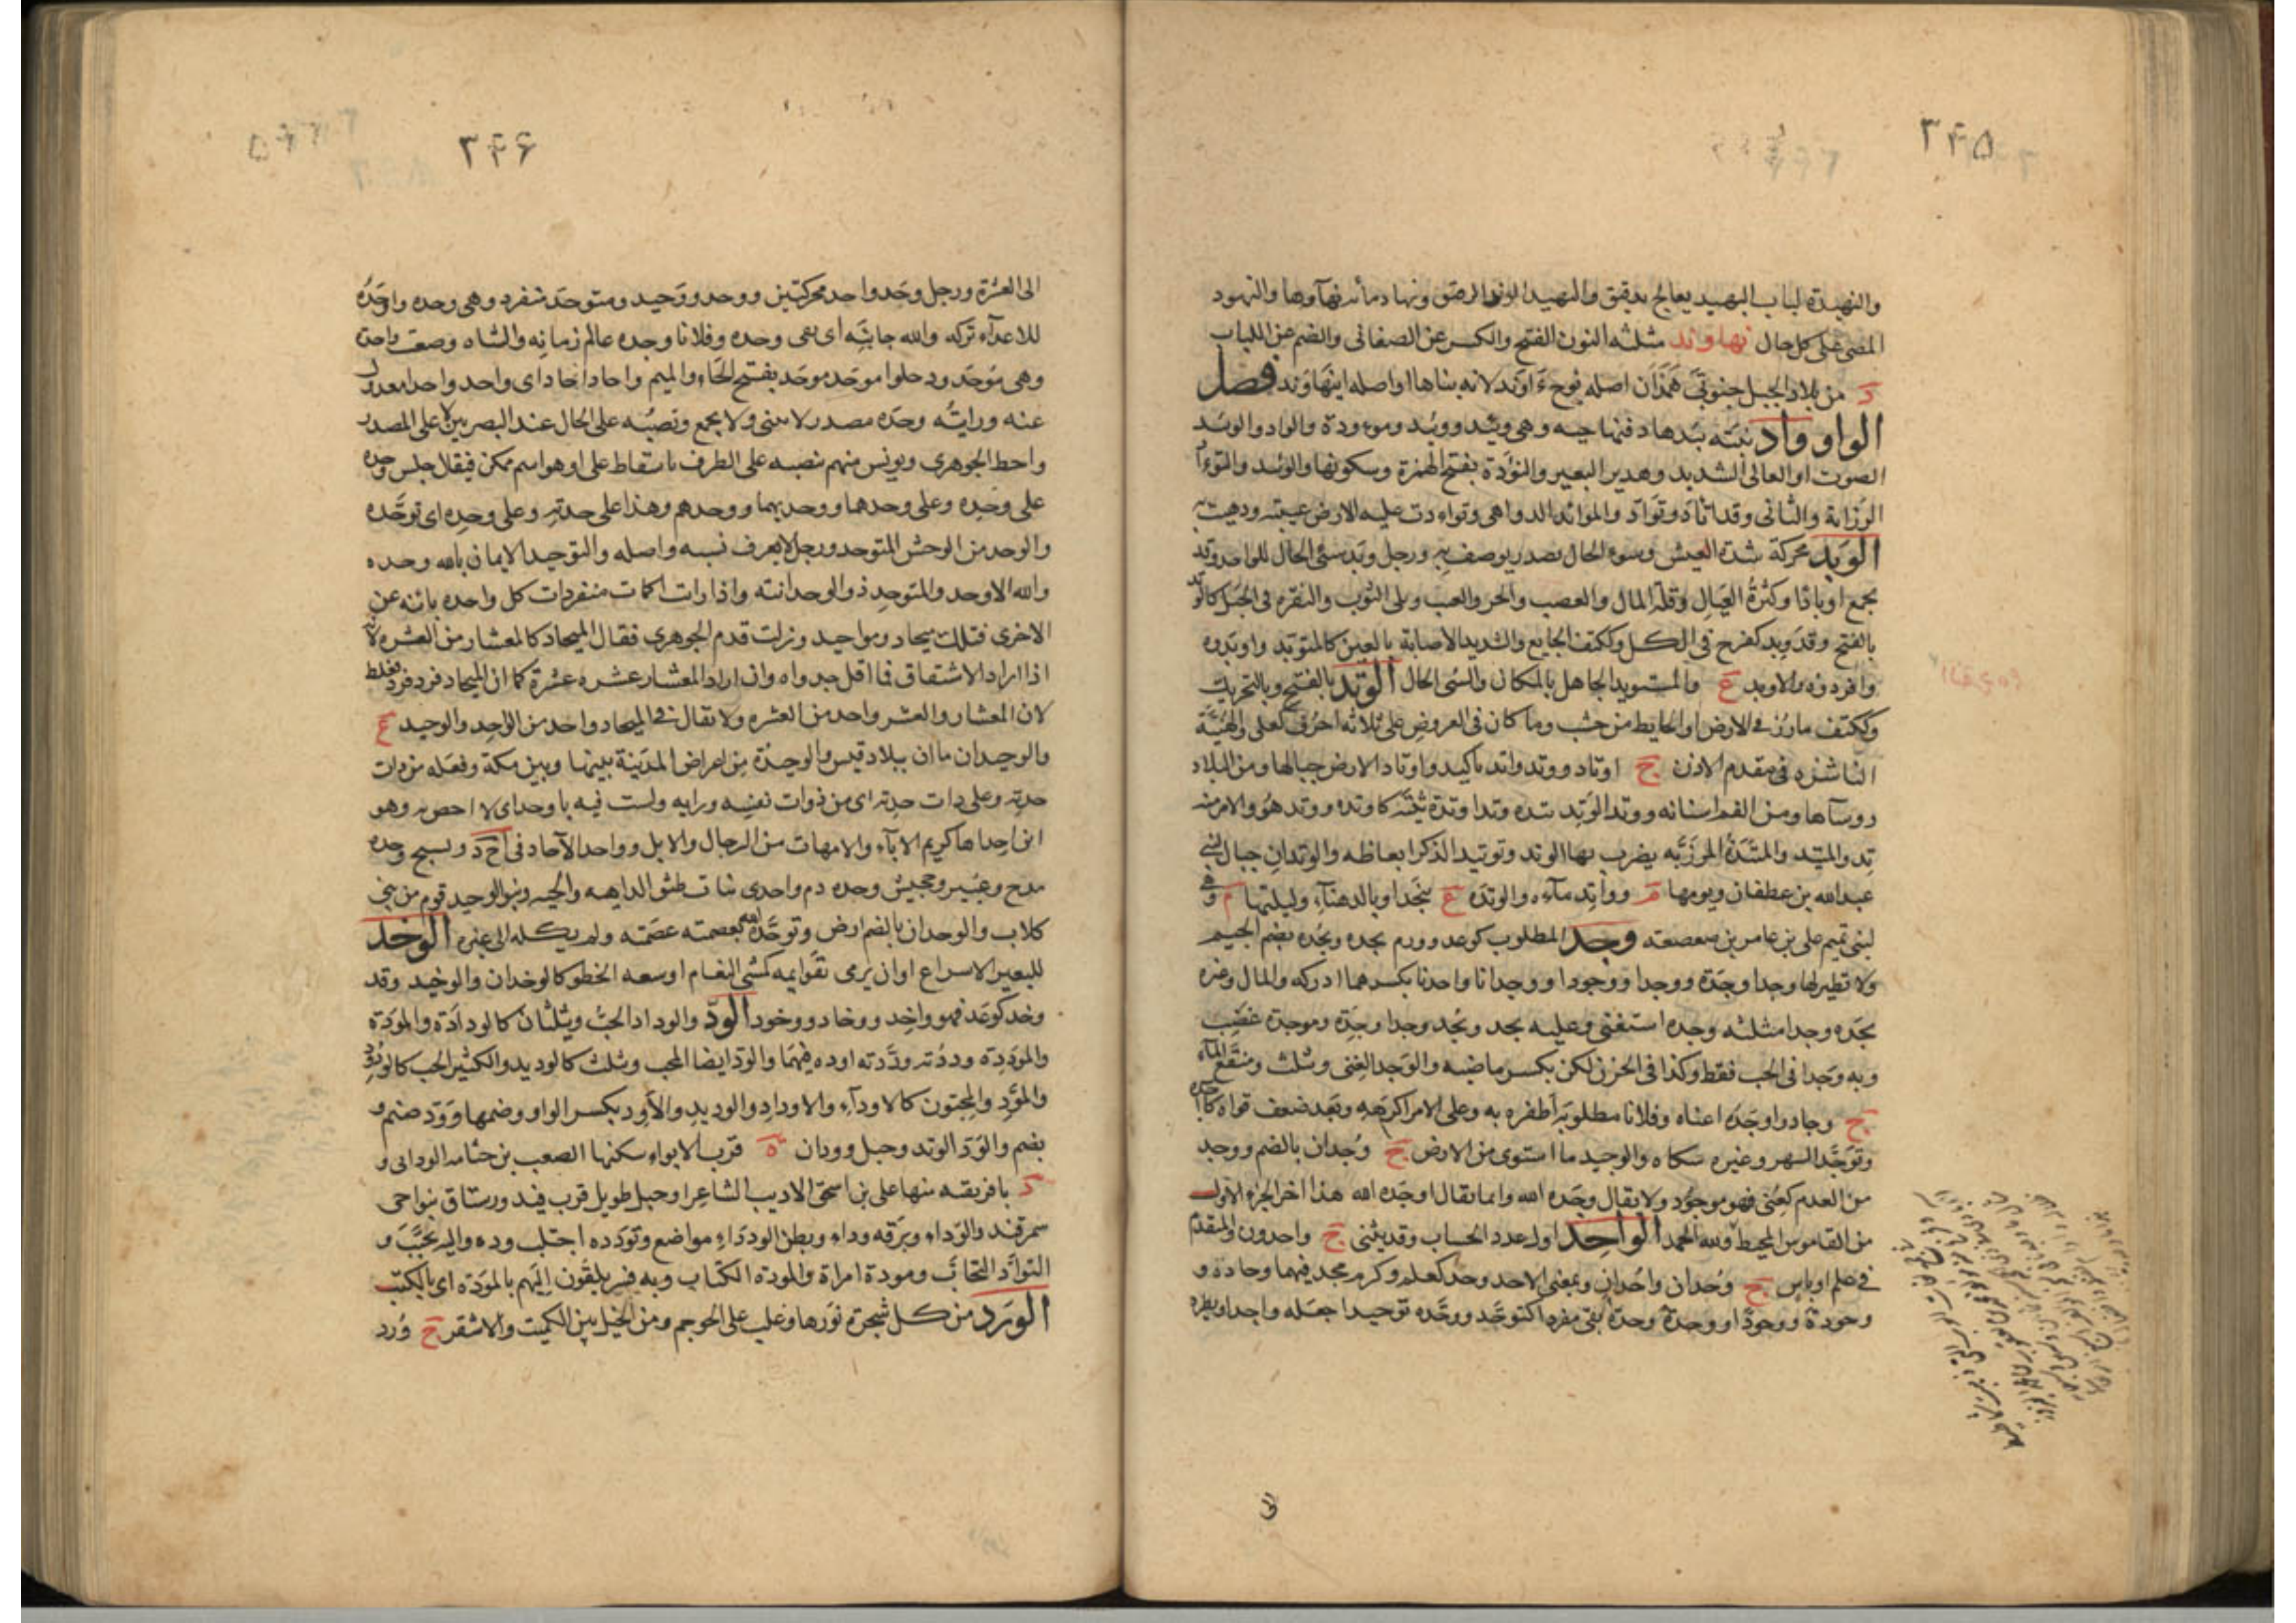 ۳۴۵
والنهيدة لباب الهبيد يعالج بدقيق والنهيد الزبد الرقيق ونهاد مائه نهآوها والنهود
المضى على كل حال نهاوند مثلثه النون الفتح والكسر عن الصغانى والضم عن اللباب
د من بلاد الجبل جنوبى همذان اصله نوح آوند لانه بناها او اصله اينهاوند فصل
الواو وأد بنته يئدها دفنها حيه وهى وئيد ووئيد وموءودة والواد والوئيد
الصوت او العالى الشديد وهدير البعير والتؤدة بفتح الهمزة وسكونها والوئيد والتوءاد
الرزانة والتأنى وقد اتأد وتوأد والموائد الدواهى وتواءدت عليه الارض غيبته وذهبت به
الوبد محركة شدة العيش وسوء الحال مصدر يوصف به ورجل وبد سئى الحال للواحد وقد
يجمع اوبادا وكثرة العيال وقلة المال والغضب والحر والعيب وبلى الثوب والنقرة فى الجبل كالوبد
بالفتح وقد وبد كفرح فى الكل وككتف الجايع والشديد الاصابة بالعين كالمتوبد واوبدوه
وافردوه والاوبد ع والمستوبد الجاهل بالمكان والسئى الحال الوتد بالفتح وبالتحريك
وككتف مارز فى الارض او الحايط من خشب وما كان فى العروض على ثلاثه احرف كعلى والهنية
الناشزه فى مقدم الاذن ج اوتاد ووتد واتد تاكيد واوتاد الارض جبالها ومن البلاد
روساها ومن الفم اسنانه ووتد الوتد يتده وتدا وتدة ثبته كاوتده ووتد هو والامر منه
تد والميتد والميتدة المرزبه يضرب بها الوتد وتوتيد الذكر انعاظه والوتدان جبال لبنى
عبدالله بن غطفان ويومها م وواتد ماءه والوتده ع بنجد او بالدهناء وليلتها م وهى
لبنى تميم على بنى عامر بن صعصعه وجد المطلوب كوعد وورم يجده ويجده بضم الجيم
ولا نظير لها وجدا وجدة ووجدا ووجودا ووجدانا واجدانا بكسرهما ادركه والمال وغيره
يجده وجدا مثلثه وجده استغنى وعليه يجد ويجد وجدا وجدة وموجدة غضب
وبه وجدا فى الحب فقط وكذا فى الحزن لكن بكسر ماضيه والوجد الغنى ويثلث ومنقع الماء
ج وجاد واوجده اغناه وفلانا مطلوبه اظفره به وعلى الامر اكرهه وبعد ضعف قواه كآجده
وتوجد السهر وغيره شكاه والوجيد ما استوى من الارض ج وجدان بالضم ووجد
من العدم كعنى فهو موجود ولا يقال وجده الله وانما يقال اوجده الله هذا اخر الجزء الاول
من القاموس المحيط ولله الحمد الواحد اول عدد الحساب وقد يثنى ج واحدون والمتقدم
فى علم او باس ج وحدان واحدان وبمعنى الاحد وحد كعلم وكرم يحد فيهما وحادة و
وحودة ووحودا ووحدة وحدة بقى مفردا كتوحد ووحده توحيدا جعله واحدا ويطرد
الى
۳۴۶
الى العشرة ورجل وحد واحد محركتين ووحد ووحيد ومتوحد منفرد وهى وحده واوحده
للاعداء تركه والله جانبه اى بقى وحده وفلانا وحده عالم زمانه والشاه وضعت واحدة
وهى موحد ودخلوا موحد موحد بفتح الحاء والميم واحاد احاد اى واحد واحد معدول
عنه ورايته وحده مصدر لا يثنى ولا يجمع ونصبه على الحال عند البصريين لا على المصدر
واخطا الجوهرى ويونس منهم ينصبه على الظرف باسقاط على او هو اسم ممكن فيقال جلس وحده
على وحده وعلى وحدهما ووحديهما ووحدهم وهذا على حدته وعلى وحده اى توحده
والوحد من الوحش المتوحد ورجل لا يعرف نسبه واصله والتوحيد الايمان بالله وحده
والله الاوحد والمتوحد ذو الوحدانية واذا رات اكمات منفردات كل واحده بائنه عن
الاخرى فتلك ميحاد ومواحيد وزلت قدم الجوهرى فقال الميحاد كالمعشار من العشره لانه
اذا اراد الاشتقاق فما اقل جدواه وان اراد المعشار عشره عشرة كما ان الميحاد فرد فرد فغلط
لان المعشار والعشر واحد من العشره ولا يقال فى الميحاد واحد من الواحد والوحيد ع
والوحيدان ماان ببلاد قيس والوحيدة من اعراض المدينة بينها وبين مكة وفعله من ذات
حدته وعلى ذات حدته اى من ذوات نفسه ورايه ولست فيه باوحد اى لا اخص به وهو
ابن احداها كريم الاباء والامهات من الرجال والابل وواحد الآحاد فى احد ونسيج وحده
مدح وعيير وجحيش وحده ذم واحدى بنات طبق الداهيه والحيه وبنو الوحيد قوم من بنى
كلاب والوحدان بالضم ارض وتوحده الله بعصمته عصمه ولم يكله الى غيره الوخد
للبعير الاسراع او ان يرمى بقوايمه كمشى النعام او سعه الخطو كالوخدان والوخيد وقد
وخد كوعد فهو واخد ووخاد ووخود الود والوداد الحب ويثلثان كالودادة والمودة
والموددة وددته ووددته اوده فيهما والود ايضا المحب ويثلث كالوديد والكثير الحب كالودود
والمود والمحبون كالاوداء والاوداد والوديد والاود بكسر الواو وضمها وود صنم و
بضم والود الوتد وجبل وودان ة قرب الابواء سكنها الصعب بن جثامه الودانى و
د بافريقيه منها على بن اسحق الاديب الشاعر وجبل طويل قرب فيد ورستاق بنواحى
سمرقند والوداء وبرقه وداء وبطن الودداء مواضع وتودده اجتلب وده واليه تحبب و
التواد التحاب ومودة امراة والموده الكتاب وبه فسر يلقون اليهم بالمودة اى بالكتب
الورد من كل شجرة نورها وغلب على الحوجم ومن الخيل بين الكميت والاشقر ج ورد